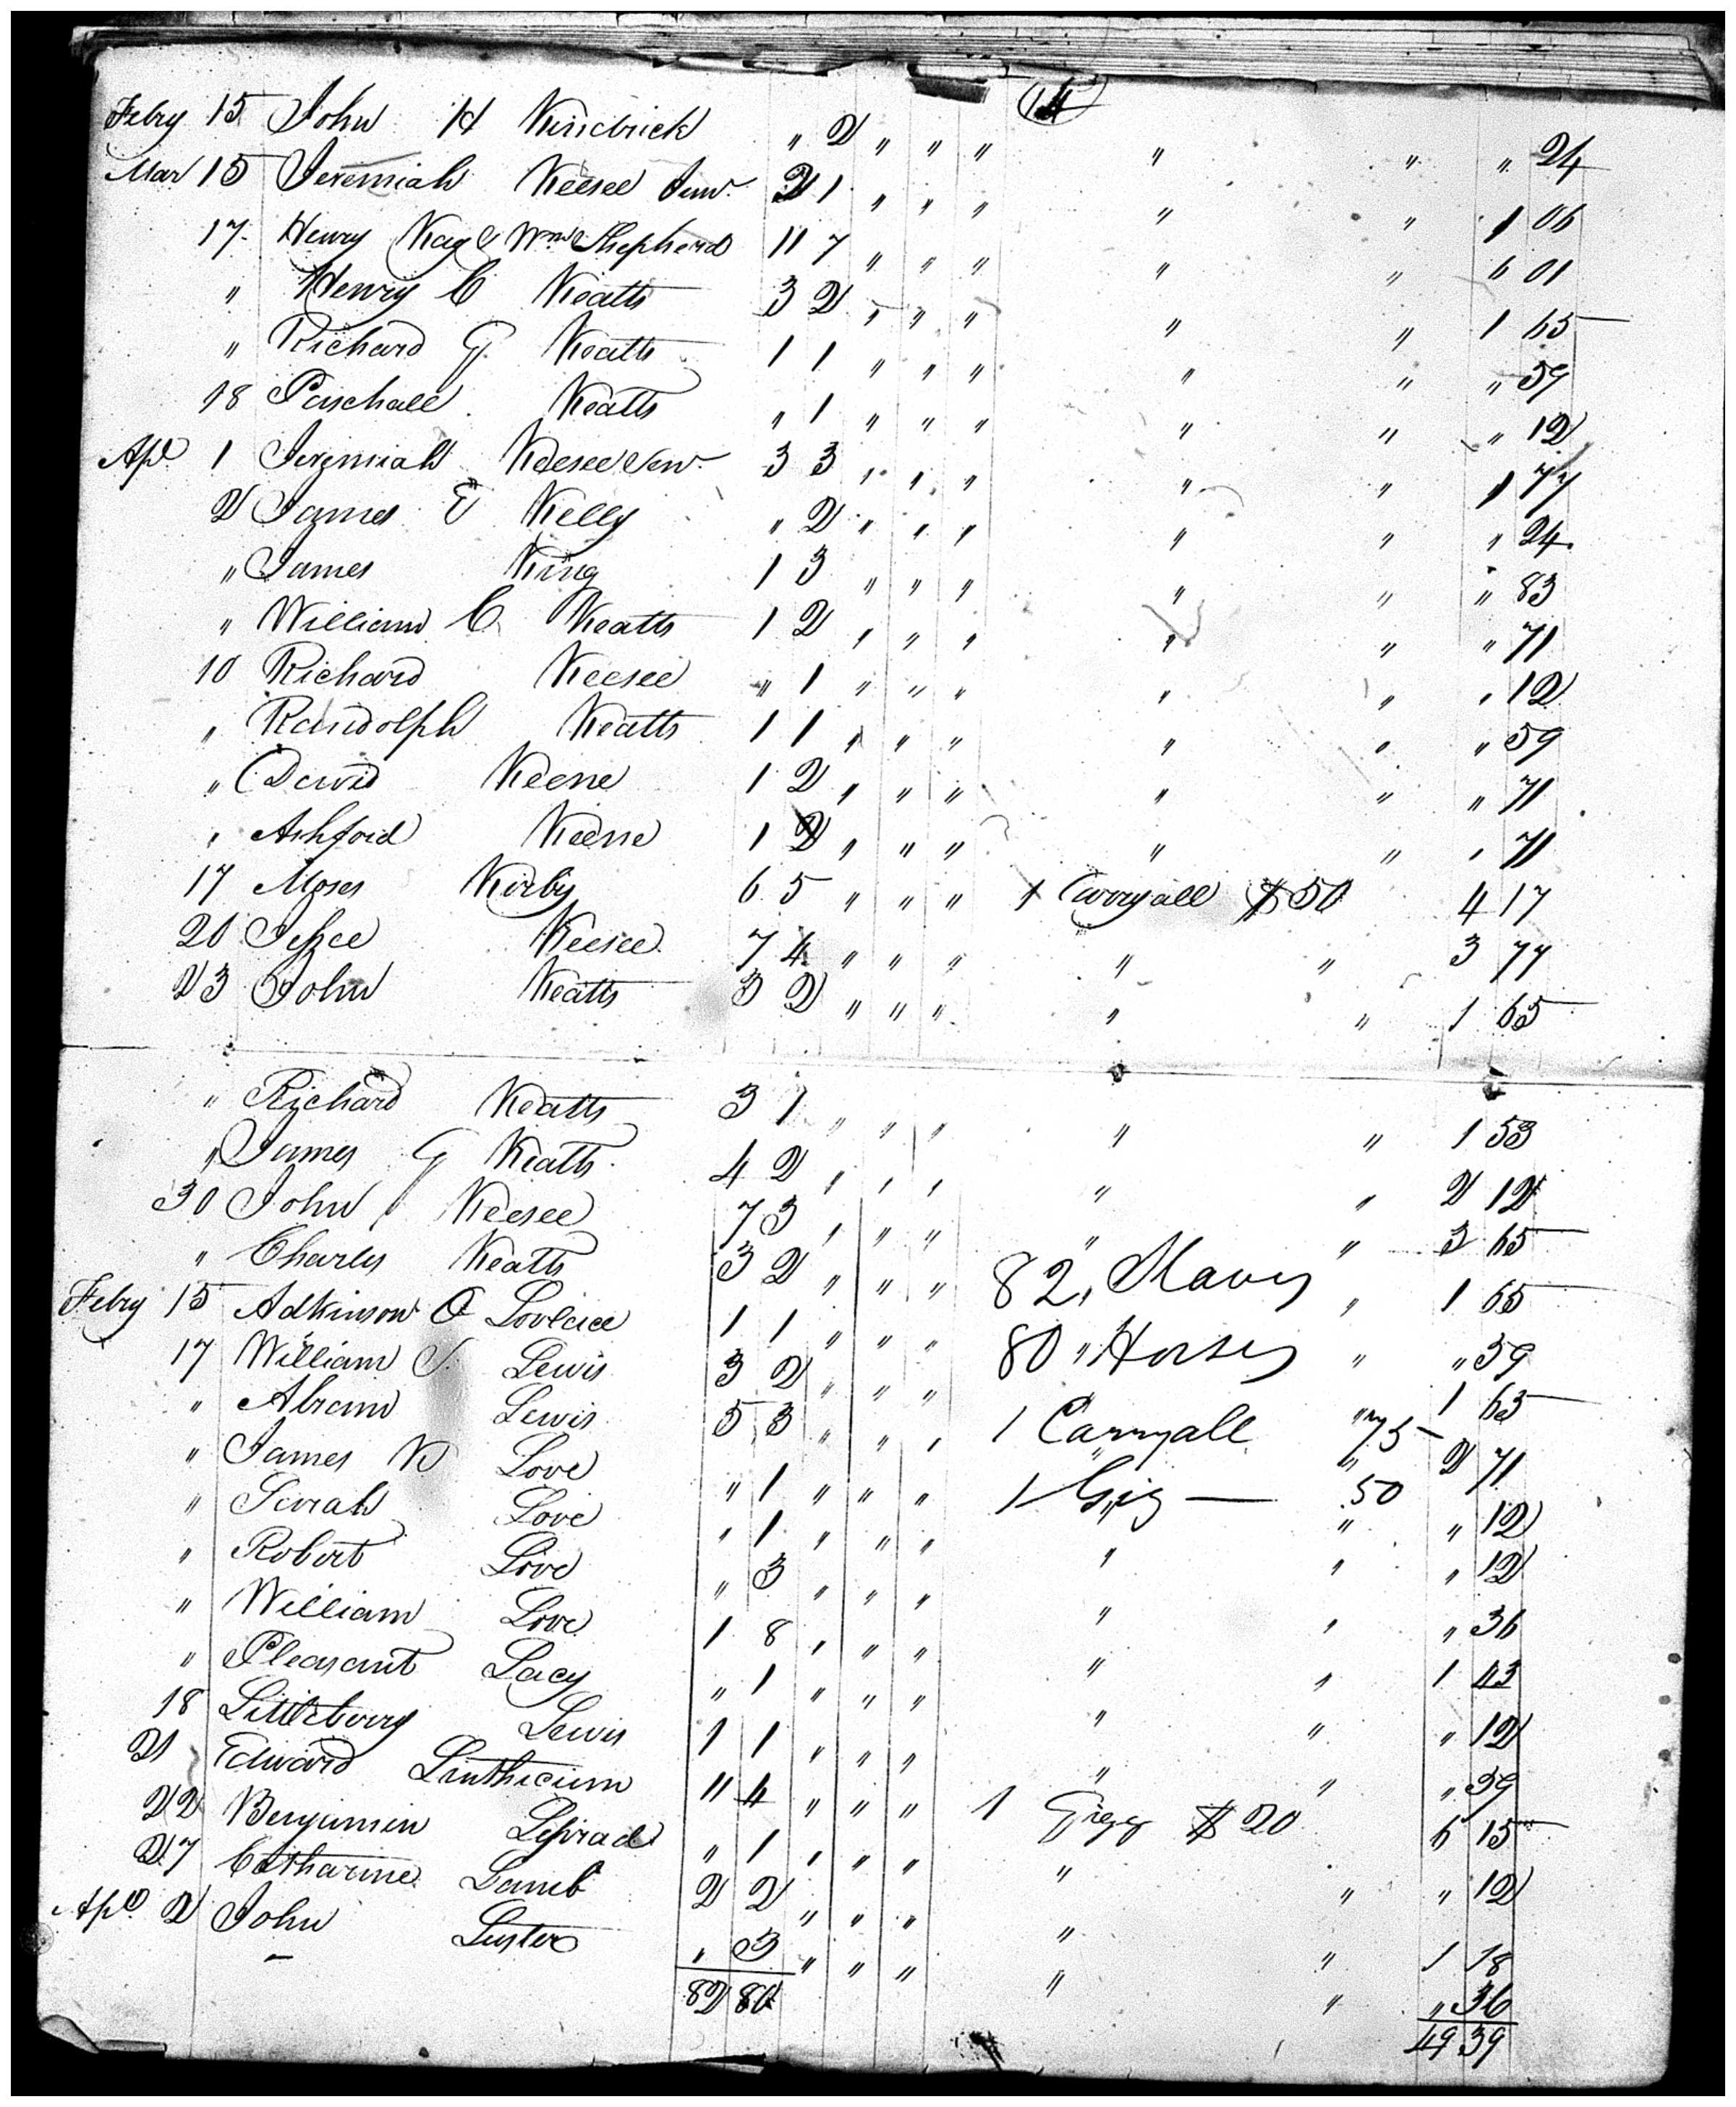 14
Feby 15 John H Kendrick " 2 " " " " " " 24
Mar 15 Jeremiah Keesee Junr. 2 1 " " " " " 1 06
17 Henry Kay & Wm Shepherd 11 7 " " " " " 6 01
" Henry C Keatts 3 2 " " " " " 1 65
" Richard G. Keatts 1 1 " " " " " " 59
18 Paschall Keatts " 1 " " " " " " 12
Apl 1 Jeremiah Keesee Senr. 3 3 " " " " " 1 77
2 James E Kelly " 2 " " " " " " 24
" James King 1 3 " " " " " " 83
" William C Keatts 1 2 " " " " " " 71
10 Richard Keesee " 1 " " " " " " 12
" Randolph Keatts 1 1 " " " " " " 59
" David Keene 1 2 " " " " " " 71
" Ashford Keene 1 2 " " " " " " 71
17 Moses Kirby 6 5 " " " 1 Carryall $50 4 17
20 Jesse Keesee 7 4 " " " " " 3 77
23 John Keatts 3 2 " " " " " 1 65
" Richard Keatts 3 1 " " " " " 1 53
" James G Keatts 4 2 " " " " " 2 12
30 John Keesee 7 3 " " " " " 3 65
" Charles Keatts 3 2 " " " 82, Slaves " 1 65
Feby 15 Adkinson O Lovelace 1 1 " " " 80 " Horses " " 59
17 William S. Lewis 3 2 " " " " 1 65
" Abram Lewis 5 3 " " " 1 Carryall 75 " 2 71
" James Love " 1 " " " 1 Gig — 50 " " 12
" Sarah Love " 1 " " " " " " 12
" Robert Love " 3 " " " " " " 36
" William Love 1 8 " " " " " 1 43
" Pleasant Lacy " 1 " " " " " " 12
18 Littleberry Lewis 1 1 " " " " " " 59
21 Edward Linthicum 11 4 " " " 1 Gigg $20 6 15
22 Benjamin " 1 " " " " " " 12
27 Catharine Lamb 2 2 " " " " " 1 18
Apl 2 John Luster " 3 " " " " " " 36
82 80 49 39